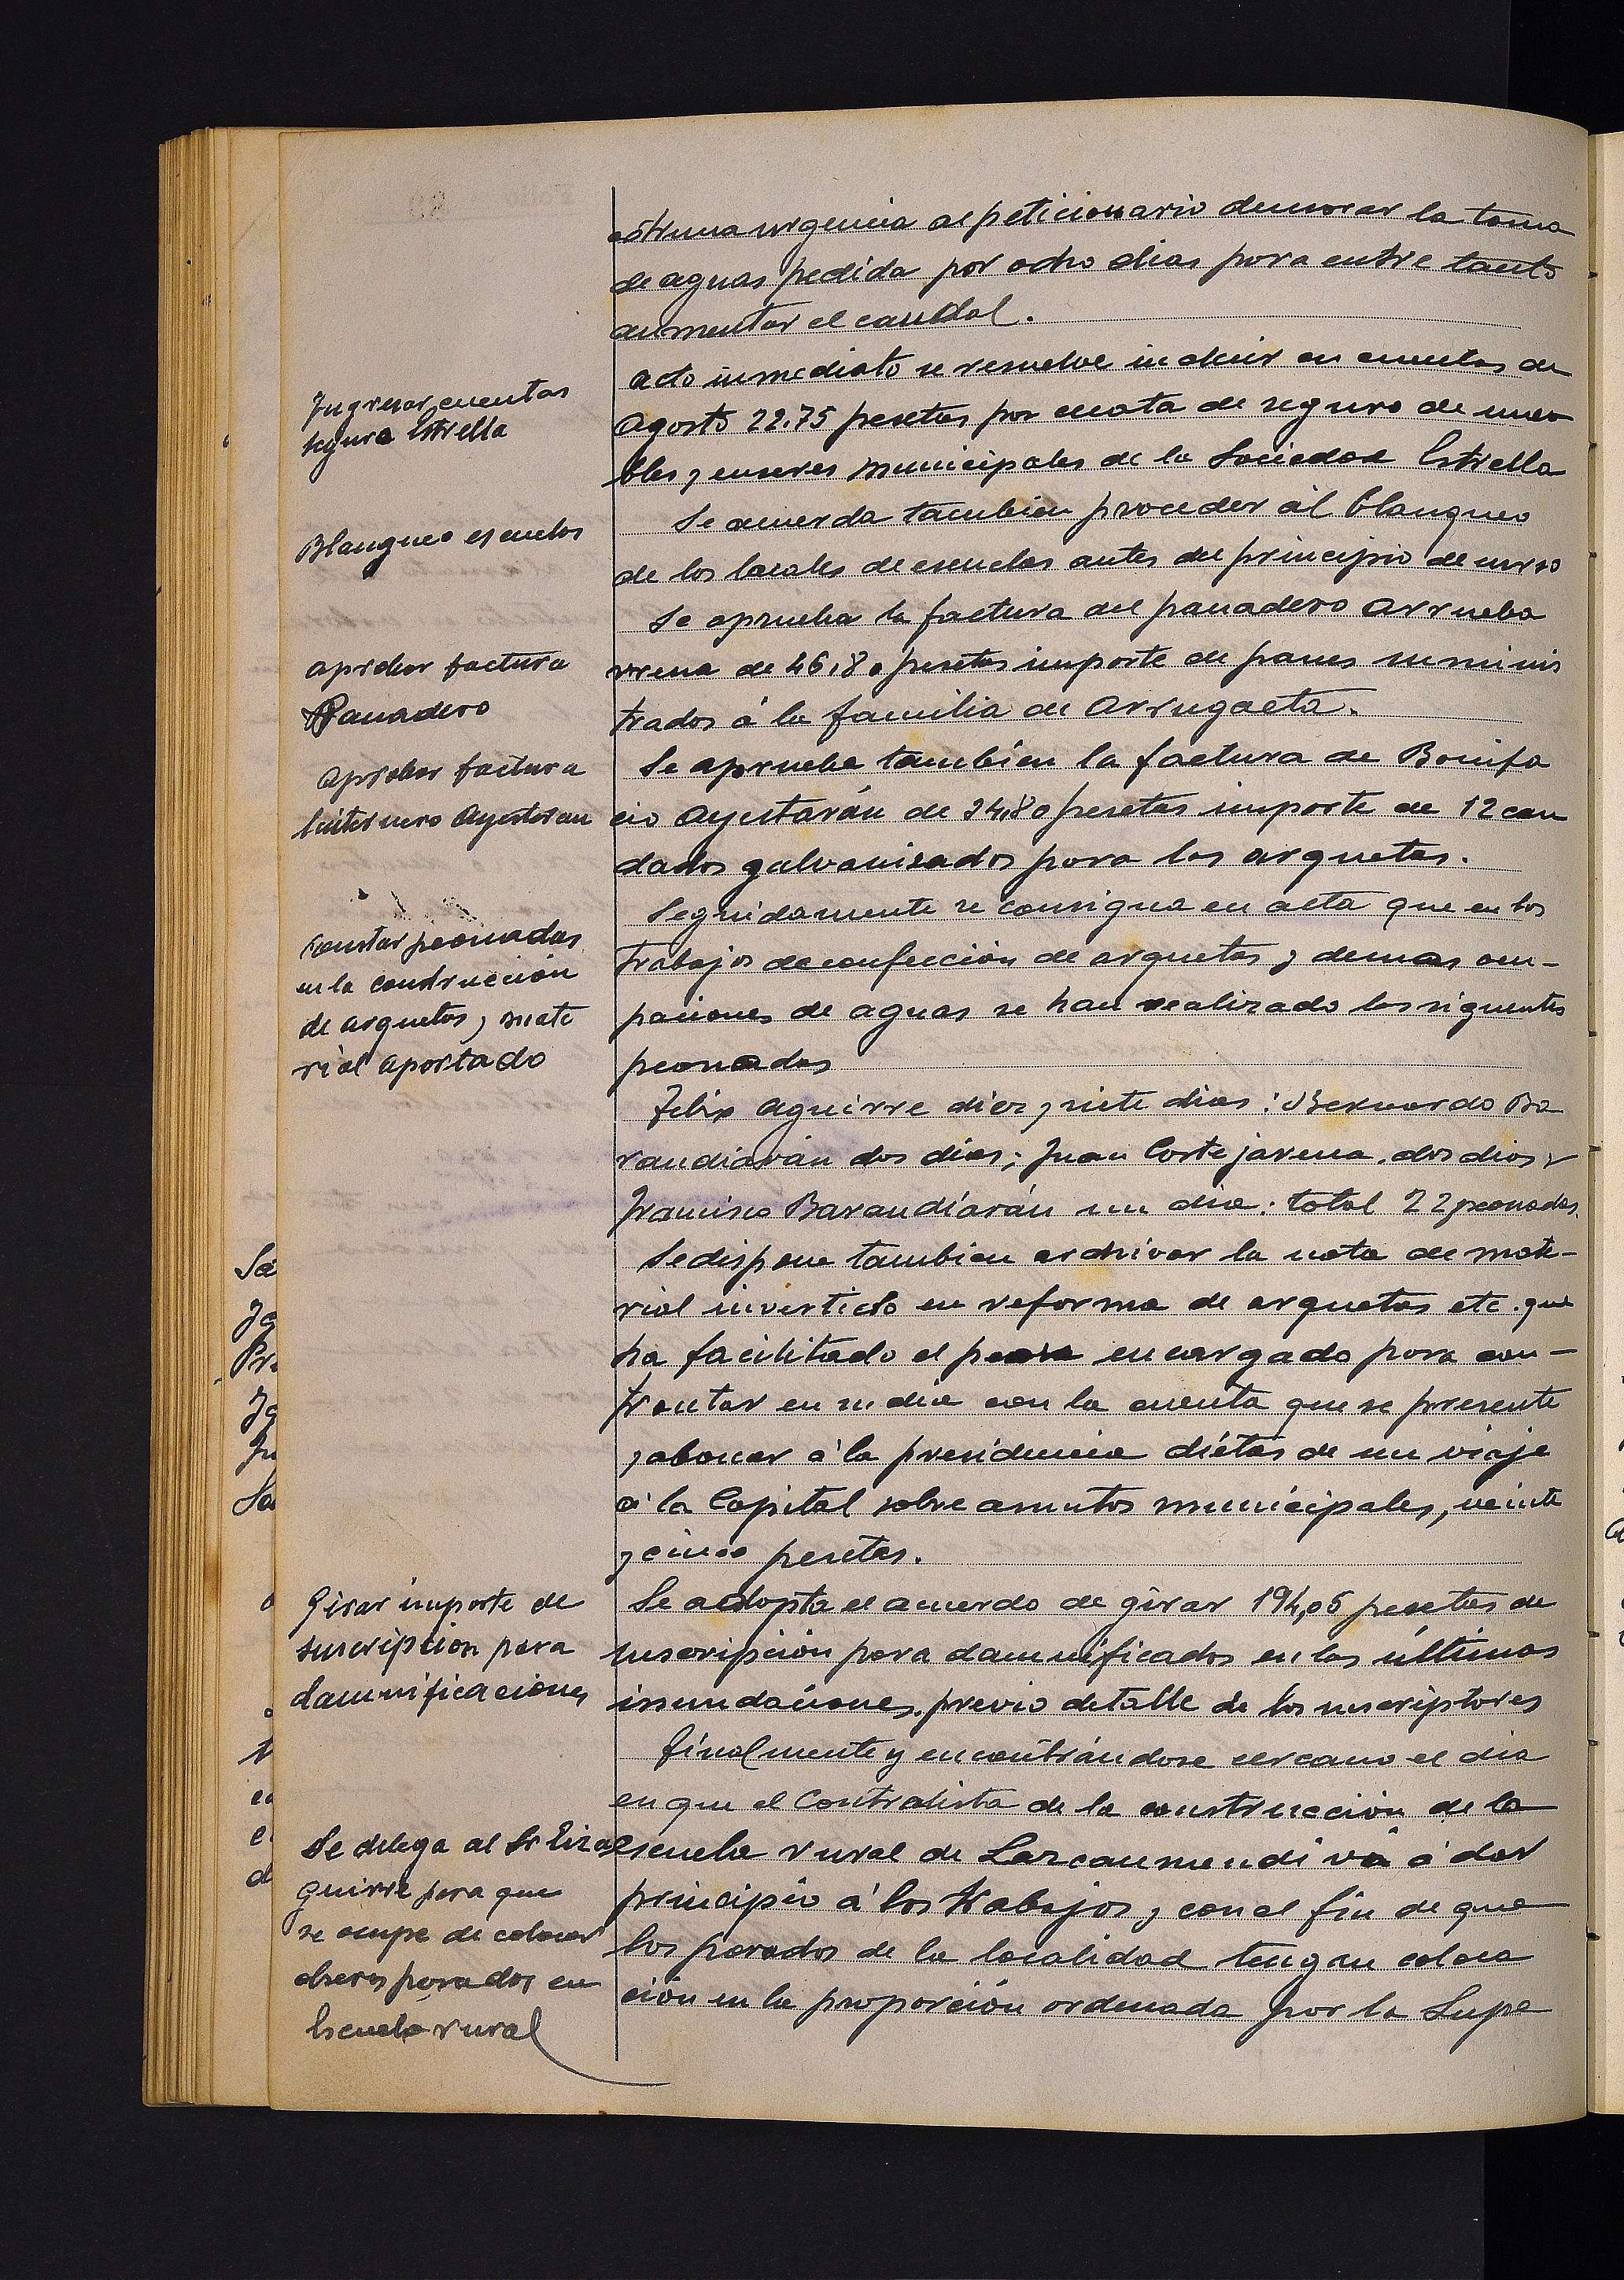 estrema urgencia al peticionario demorar la toma
de aguas pedida por ocho dias para entre tanto
aumentar el caudal.
Ingresar cuentas
seguro Estrella
acto inmediato se resuelve incluir en cuentas de
Agosto 22.75 pesetas por cuota de seguro de mue
bles y enseres municipales de la Sociedad Estrella
Blanqueo escuelas
Se acuerda tambien proceder al blanqueo
de los locales de escuelas antes del principio de curso
aprobar factura
Panadero
Se aprueba la factura del panadero Arrueba
rrena de 46,80 pesetas importe de panes suminis
trados á la familia de Arrugaeta.
Aprobar factura
linternero Ayestaran
Se aprueba también la factura de Bonifa
cio Ayestarán de 24,80 pesetas importe de 12 can
dados galvanizados para las arquetas.
Constar peonadas
en la construcción
de arquetas y mate
rial aportado
Seguidamente se consigna en acta que en los
trabajos de confección de arquetas y demas ocu-
paciones de aguas se han realizado las siguentes
peonadas
Felix Aguirre diez y siete dias: Bernardo Ba
randiarán dos dias; Juan Cortejarena, dos dias y
Francisco Barandiarán un dia: total 22 peonadas.
Se dispone tambien archivar la nota de mate-
rial invertido en reforma de arquetas etc. que
ha facilitado el peon encargado para con-
frontar en su dia con la cuenta que se presente
y abonar á la presidencia diétas de un viaje
á la Capital sobre asuntos municipales, veinte
y cinco pesetas.
Girar importe de
suscripción para
damnificaciones
Se adopta el acuerdo de girar 194,05 pesetas de
suscripción para damnificados en las últimas
inundaciones, previo detalle de los suscriptores
Finalmente y encontrándose cercano el dia
en que el Contratista de la construcción de la
Se delega al Sr Eiza
guirre para que
se ocupe de colocar
obreros parados en
Escuela rural
escuela rural de Lazcaumendi vá á dar
principio á los trabajos, con el fin de que
los parados de la localidad tengan coloca
ción en la proporción ordenada por la Supe